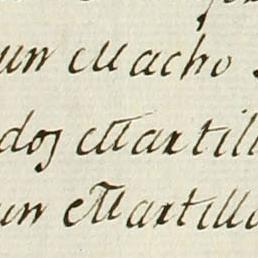 un Macho
dos Martill
un Martillo